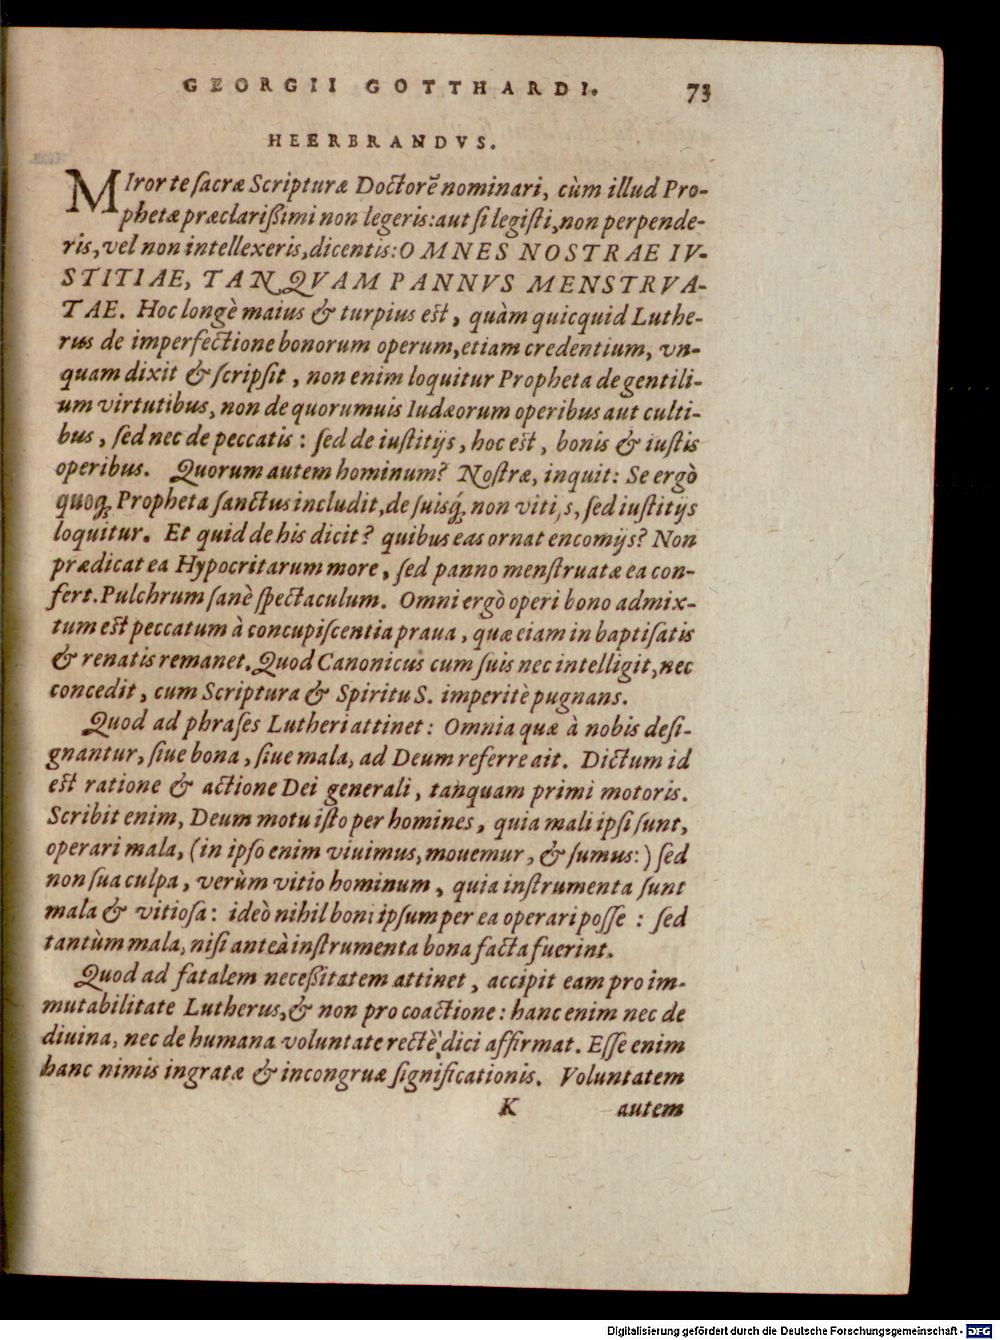 GEORGII GOTTHARDI. 73
HEERBRANDVS.
MIror te ſacræ Scripturæ Doctorē nominari, cùm illud Pro-
phetæ præclarißimi non legeris: aut ſi legiſti, non perpende-
ris, vel non intellexeris, dicentis: OMNES NOSTRAE IV-
STITIAE, TANQVAM PANNVS MENSTRVA-
TAE. Hoc longè maius & turpius est, quàm quicquid Luthe-
rus de imperfectione bonorum operum, etiam credentium, vn-
quam dixit & ſcripſit, non enim loquitur Propheta de gentili-
um virtutibus, non de quorumuis Iudæorum operibus aut culti-
bus, ſed nec de peccatis: ſed de iuſtitijs, hoc est, bonis & iuſtis
operibus. Quorum autem hominum? Noſtræ, inquit: Se ergò
quoq́ꝫ Propheta ſanctus includit, de ſuisq́ꝫ non vitijs, ſed iuſtitijs
loquitur. Et quid de his dicit? quibus eas ornat encomijs? Non
prædicat ea Hypocritarum more, ſed panno menſtruatæ ea con-
fert. Pulchrum ſanè ſpectaculum. Omni ergò operi bono admix-
tum est peccatum à concupiſcentia praua, quæ eiam in baptiſatis
& renatis remanet. Quod Canonicus cum ſuis nec intelligit, nec
concedit, cum Scriptura & Spiritu S. imperitè pugnans.
Quod ad phraſes Lutheri attinet: Omnia quæ à nobis deſi-
gnantur, ſiue bona, ſiue mala, ad Deum referre ait. Dictum id
est ratione & actione Dei generali, tanquam primi motoris.
Scribit enim, Deum motu iſto per homines, quia mali ipſi ſunt,
operari mala, (in ipſo enim viuimus, mouemur, & ſumus:) ſed
non ſua culpa, verùm vitio hominum, quia inſtrumenta ſunt
mala & vitioſa: ideò nihil boni ipſum per ea operari poſſe: ſed
tantùm mala, niſi anteà inſtrumenta bona facta fuerint.
Quod ad fatalem neceßitatem attinet, accipit eam pro im-
mutabilitate Lutherus, & non pro coactione: hanc enim nec de
diuina, nec de humana voluntate rectè dici affirmat. Eſſe enim
hanc nimis ingratæ & incongruæ ſignificationis. Voluntatem
K autem
Digitalisierung gefördert durch die Deutsche Forschungsgemeinschaft - DFG